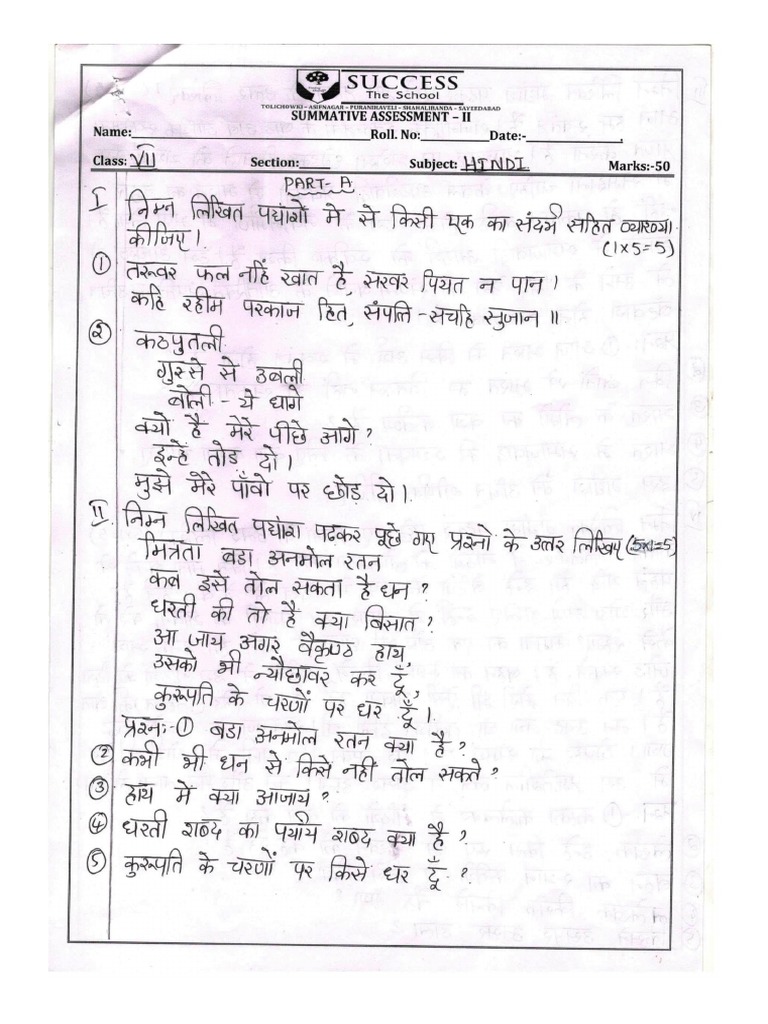 SUCCESS
The School
TOLICHOWKI – ASIFNAGAR – PURANIHAVELI – SHAHALIBANDA – SAYEEDABAD
SUMMATIVE ASSESSMENT – II
Name: Roll. No: Date:-
Class: VII Section: Subject: HINDI Marks:-50
PART-A
I निम्न लिखित पद्यांशों मे से किसी एक का संदर्भ सहित व्याख्या
कीजिए।
(1x5=5)
① तरूवर फल नहिं खात है, सरवर पियत न पान।
कहि रहीम परकाज हित, संपति-सचहि सुजान॥
② कठपुतली
गुस्से से उबली
बोली - ये धागे
क्यों है मेरे पीछे आगे?
इन्हें तोड दो।
मुझे मेरे पाँवो पर छोड़ दो।
II निम्न लिखित पद्यांश पढ़कर पूछे गए प्रश्नो के उत्तर लिखिए (5x1=5)
मित्रता बडा अनमोल रतन
कब इसे तोल सकता है धन?
धरती की तो है क्या बिसात?
आ जाय अगर वैकुण्ठ हाथ
उसको भी न्यौछावर कर दूँ,
कुरूपति के चरणों पर धर दूँ।
प्रश्न:-① बडा अनमोल रतन क्या है?
② कभी भी धन से किसे नहीं तोल सकते?
③ हाथ में क्या आजाय?
④ धरती शब्द का पर्याय शब्द क्या है?
⑤ कुरूपति के चरणों पर किसे धर दूँ?